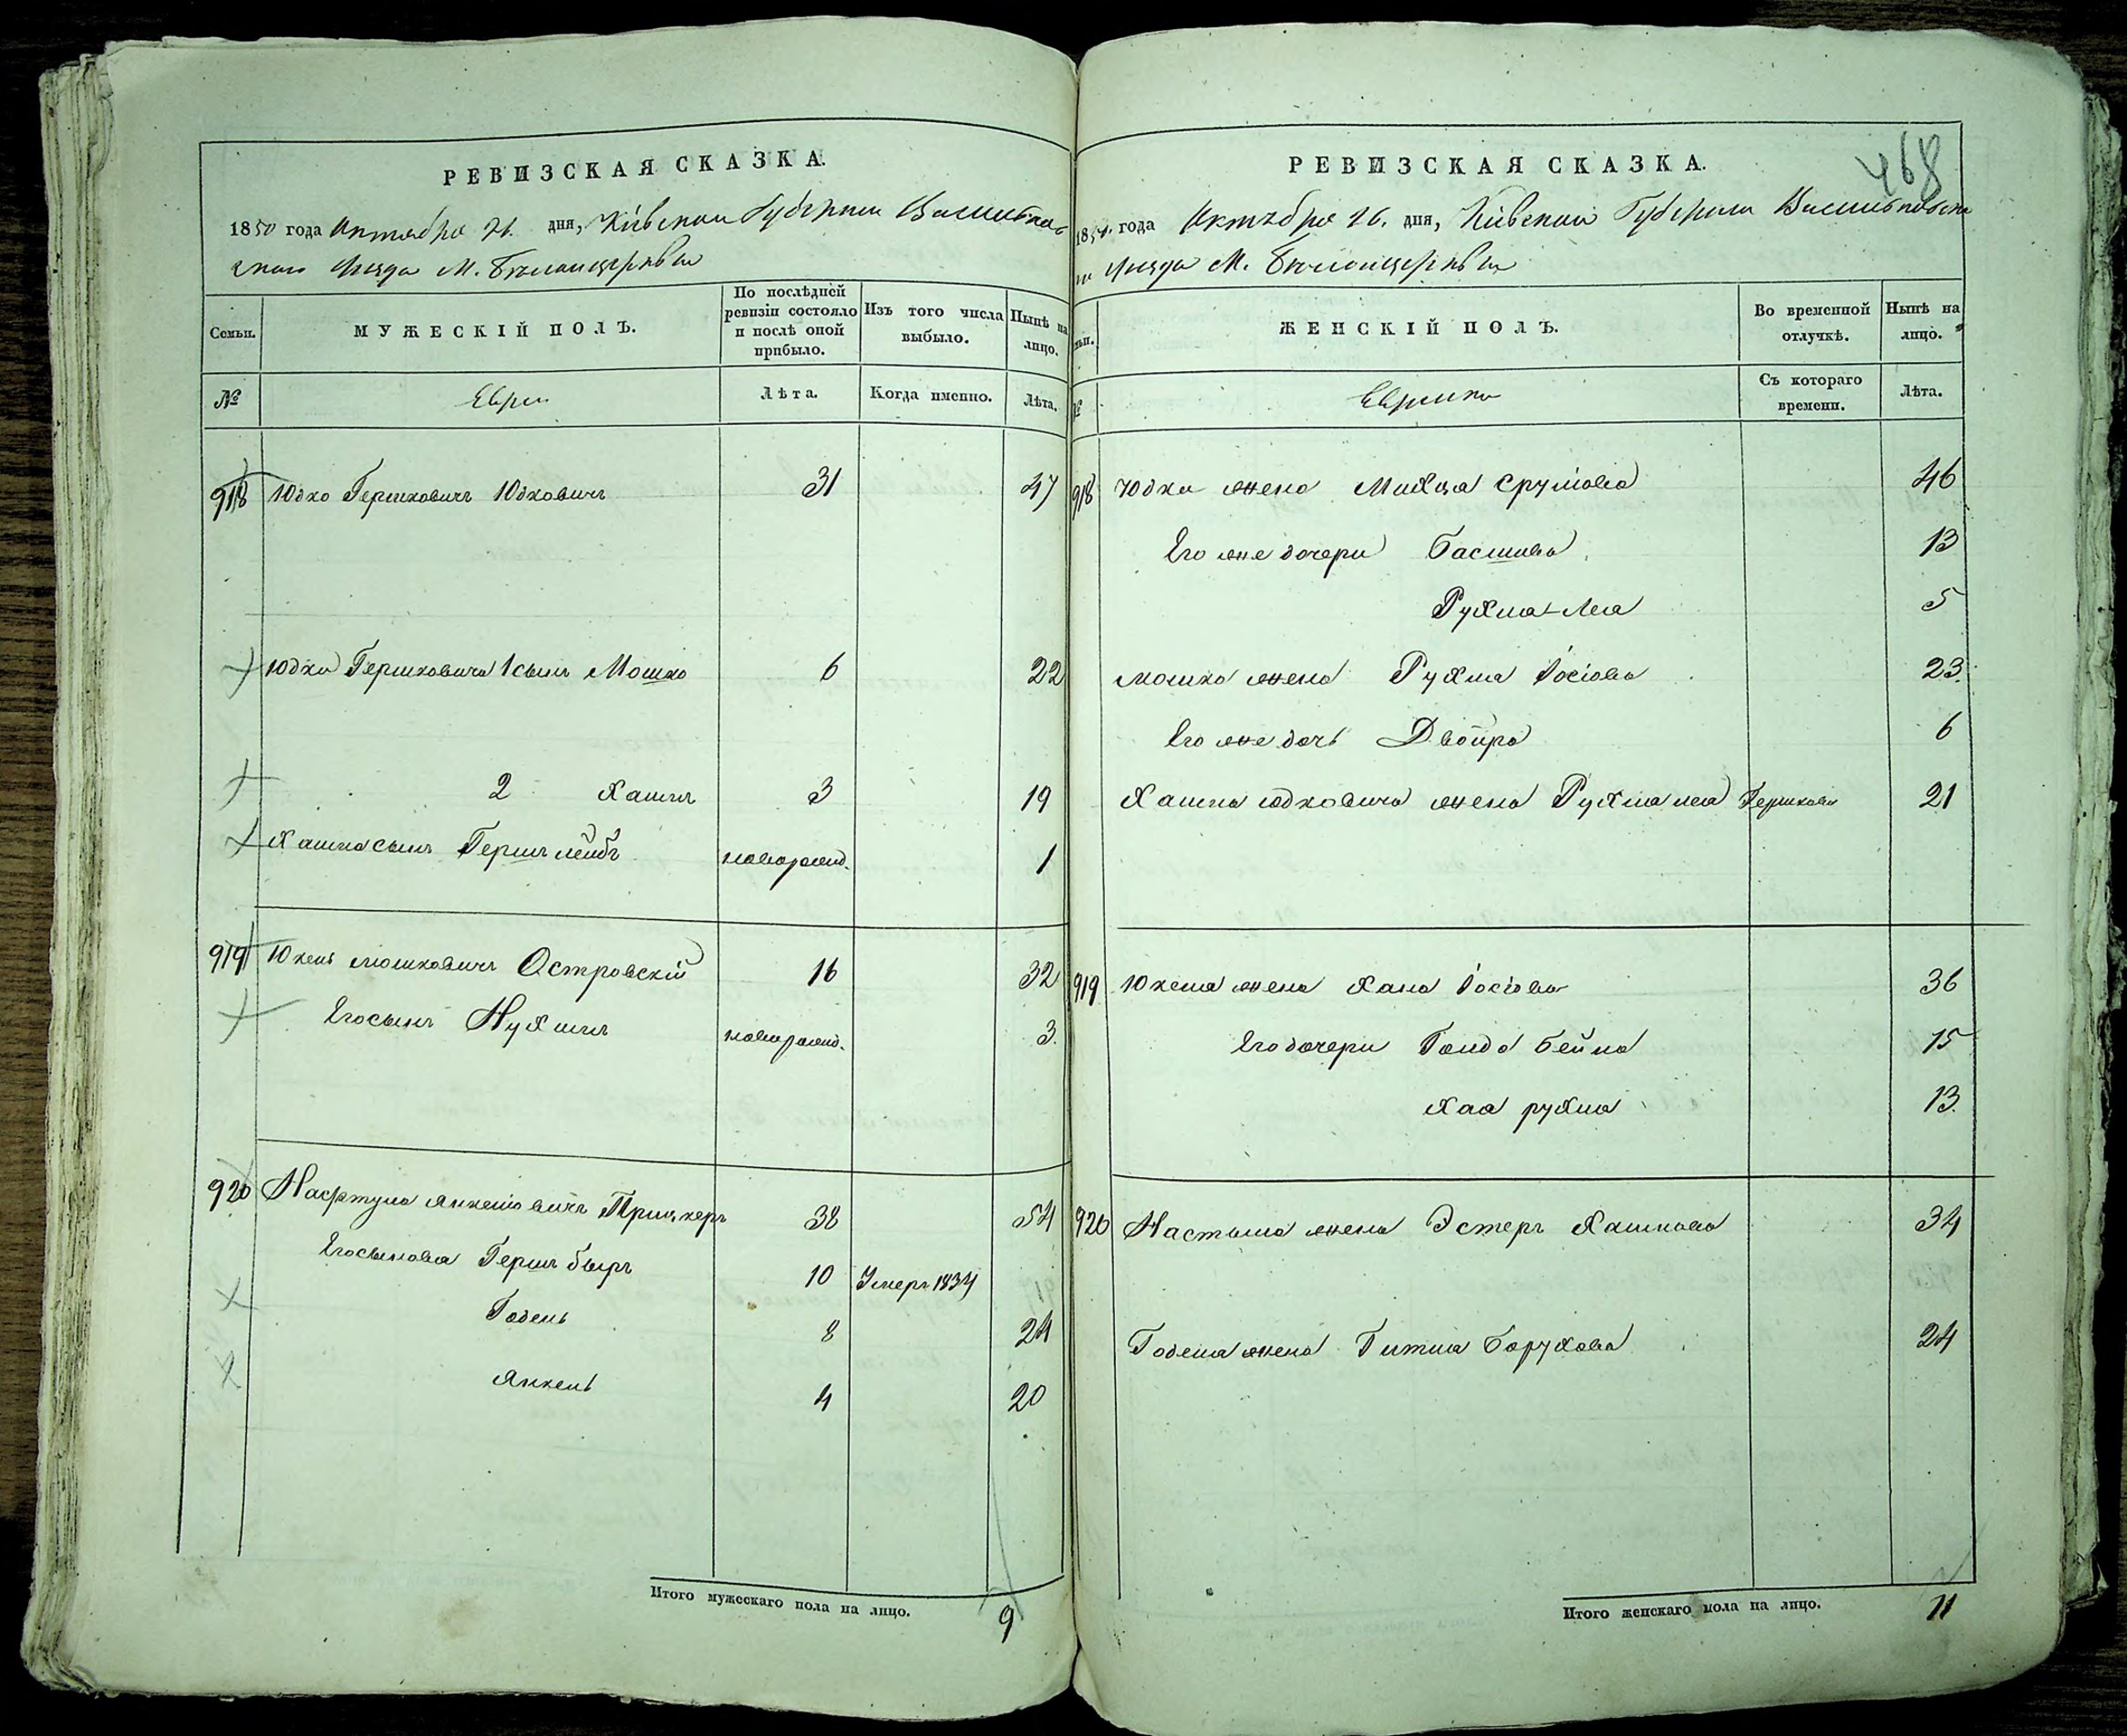 468
РЕВИЗСКАЯ СКАЗКА.
1850 года Октября 26. дня, Кіевской Губерніи Васильков
скаго Уезда М. Белойцеркви
Семьи.
МУЖЕСКІЙ ПОЛЪ.
По послѣдней ревизіи состояло и послѣ оной прибыло.
Изъ того числа выбыло.
Нынѣ на лицо.
№
Евреи
Лѣта.
Когда именно.
Лѣта.
918 Юдко Гершковичъ Юдковичъ 31 47
Юдки Гершковича 1 сынъ Мошко 6 22
2 Хаимъ 3 19
Хаима сынъ Герш лейбъ новорожд. 1
919 Юкель Мошковичъ Островскій 16 32
Его сынъ Нухимъ новорожд. 3.
920 Янкелiовичъ 38 54
Его сыновья Герш беръ 10 Умеръ 1834
Годель 8 24
Янкель 4 20
Итого мужескаго пола на лицо. 9
РЕВИЗСКАЯ СКАЗКА.
1850 года Октября 26. дня, Кіевской Губерніи Васильковска
го Уезда М. Белойцеркви
ЖЕНСКІЙ ПОЛЪ.
Во временной отлучкѣ.
Нынѣ на лицо.
№
Еврейки
Съ котораго времени.
Лѣта.
918 Юдки жена Срулiова 46
Его же дочери Басшива 13
Рухля-Леа 5
Мошка жена Рухля Іосiова 23.
Его же дочь Двойра 6
Хаима Юдковича жена Рухля леа Гершкова 21
919 Юкеля жена Хана Іосiова 36
Его дочери Голда бейла 15
Хая рухля 13.
920 жена Эстеръ Хаимова 34
Годеля жена Гитля Борухова 24
Итого женскаго пола на лицо. 11